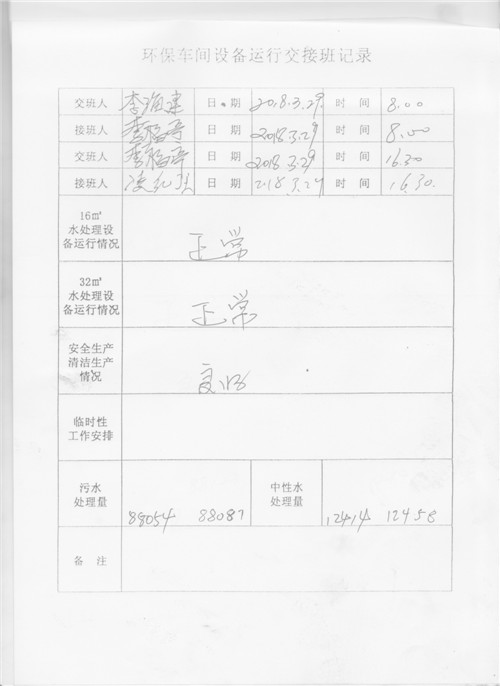 环保车间设备运行交接班记录
交班人 李海建 日期 2018.3.29 时间 8.00
接班人 日期 2018.3.29 时间 8.00
交班人 日期 2018.3.29 时间 16.30
接班人 日期 2.18.3.29 时间 16.30.
16㎡
水处理设
备运行情况
正常
32㎡
水处理设
备运行情况
正常
安全生产
清洁生产
情况
临时性
工作安排
污水
处理量
88054 88087
中性水
处理量
12414 12458
备注